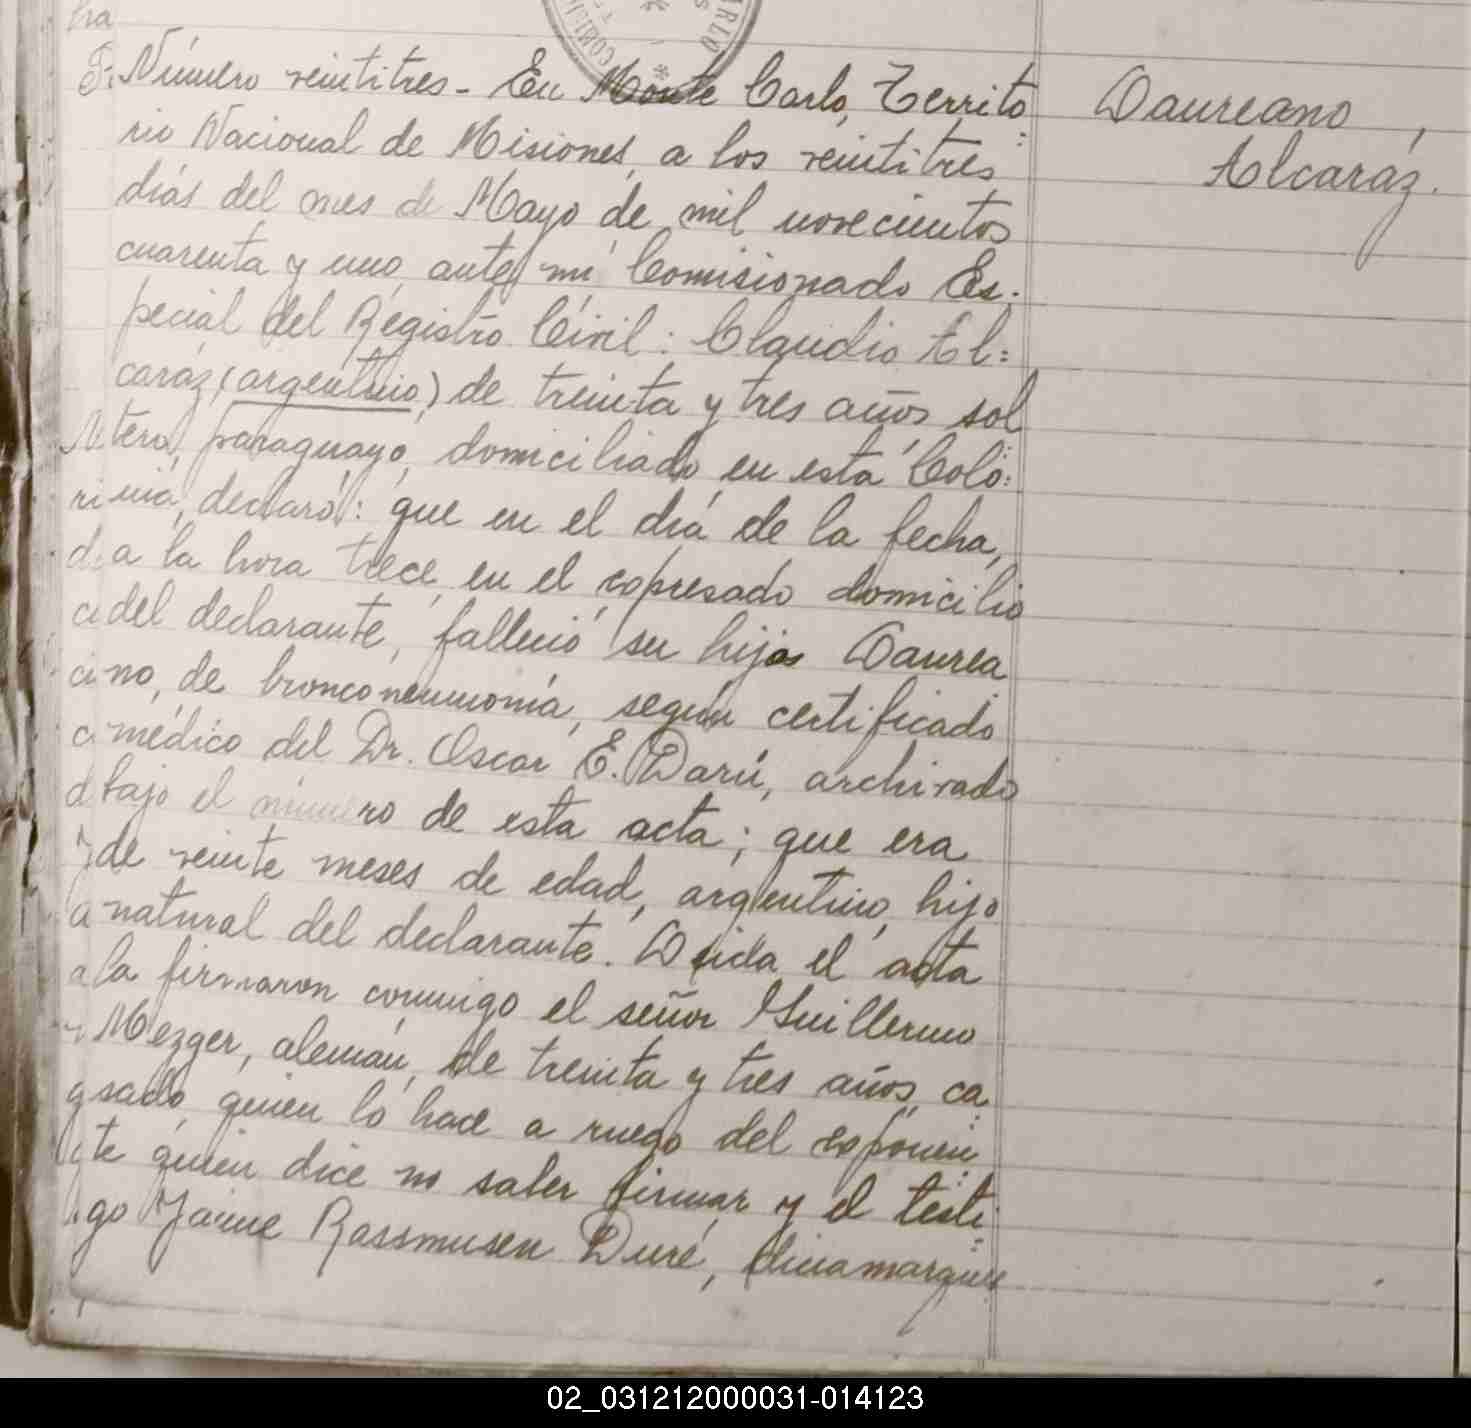 Número veintitres - En Monte Carlo, Territo
rio Nacional de Misiones, a los veintitres
días del mes de Mayo de mil novecientos
cuarenta y uno, ante mí Comisionado Es-
pecial del Registro Civil: Claudio Al=
caráz (argentino) de treinta y tres años, sol
tero, paraguayo, domiciliado en esta Colo=
nia, declaró: que en el día de la fecha,
a la hora trece, en el expresado domicilio
del declarante, falleció su hijo Laurea
no, de bronconeumonía, según certificado
médico del Dr. Oscar E. Darú, archivado
bajo el número de esta acta; que era
de veinte meses de edad, argentino, hijo
natural del declarante. Leida el acta
la firmaron conmigo el señor Guillermo
Mezger, alemán, de treinta y tres años, ca
sado, quien lo hace a ruego del exponen
te quien dice no saber firmar y el testi
go Jaime Rassmusen Duré, dinamarques
Laureano
Alcaráz.
MONTE CARLO
02_031212000031-014123